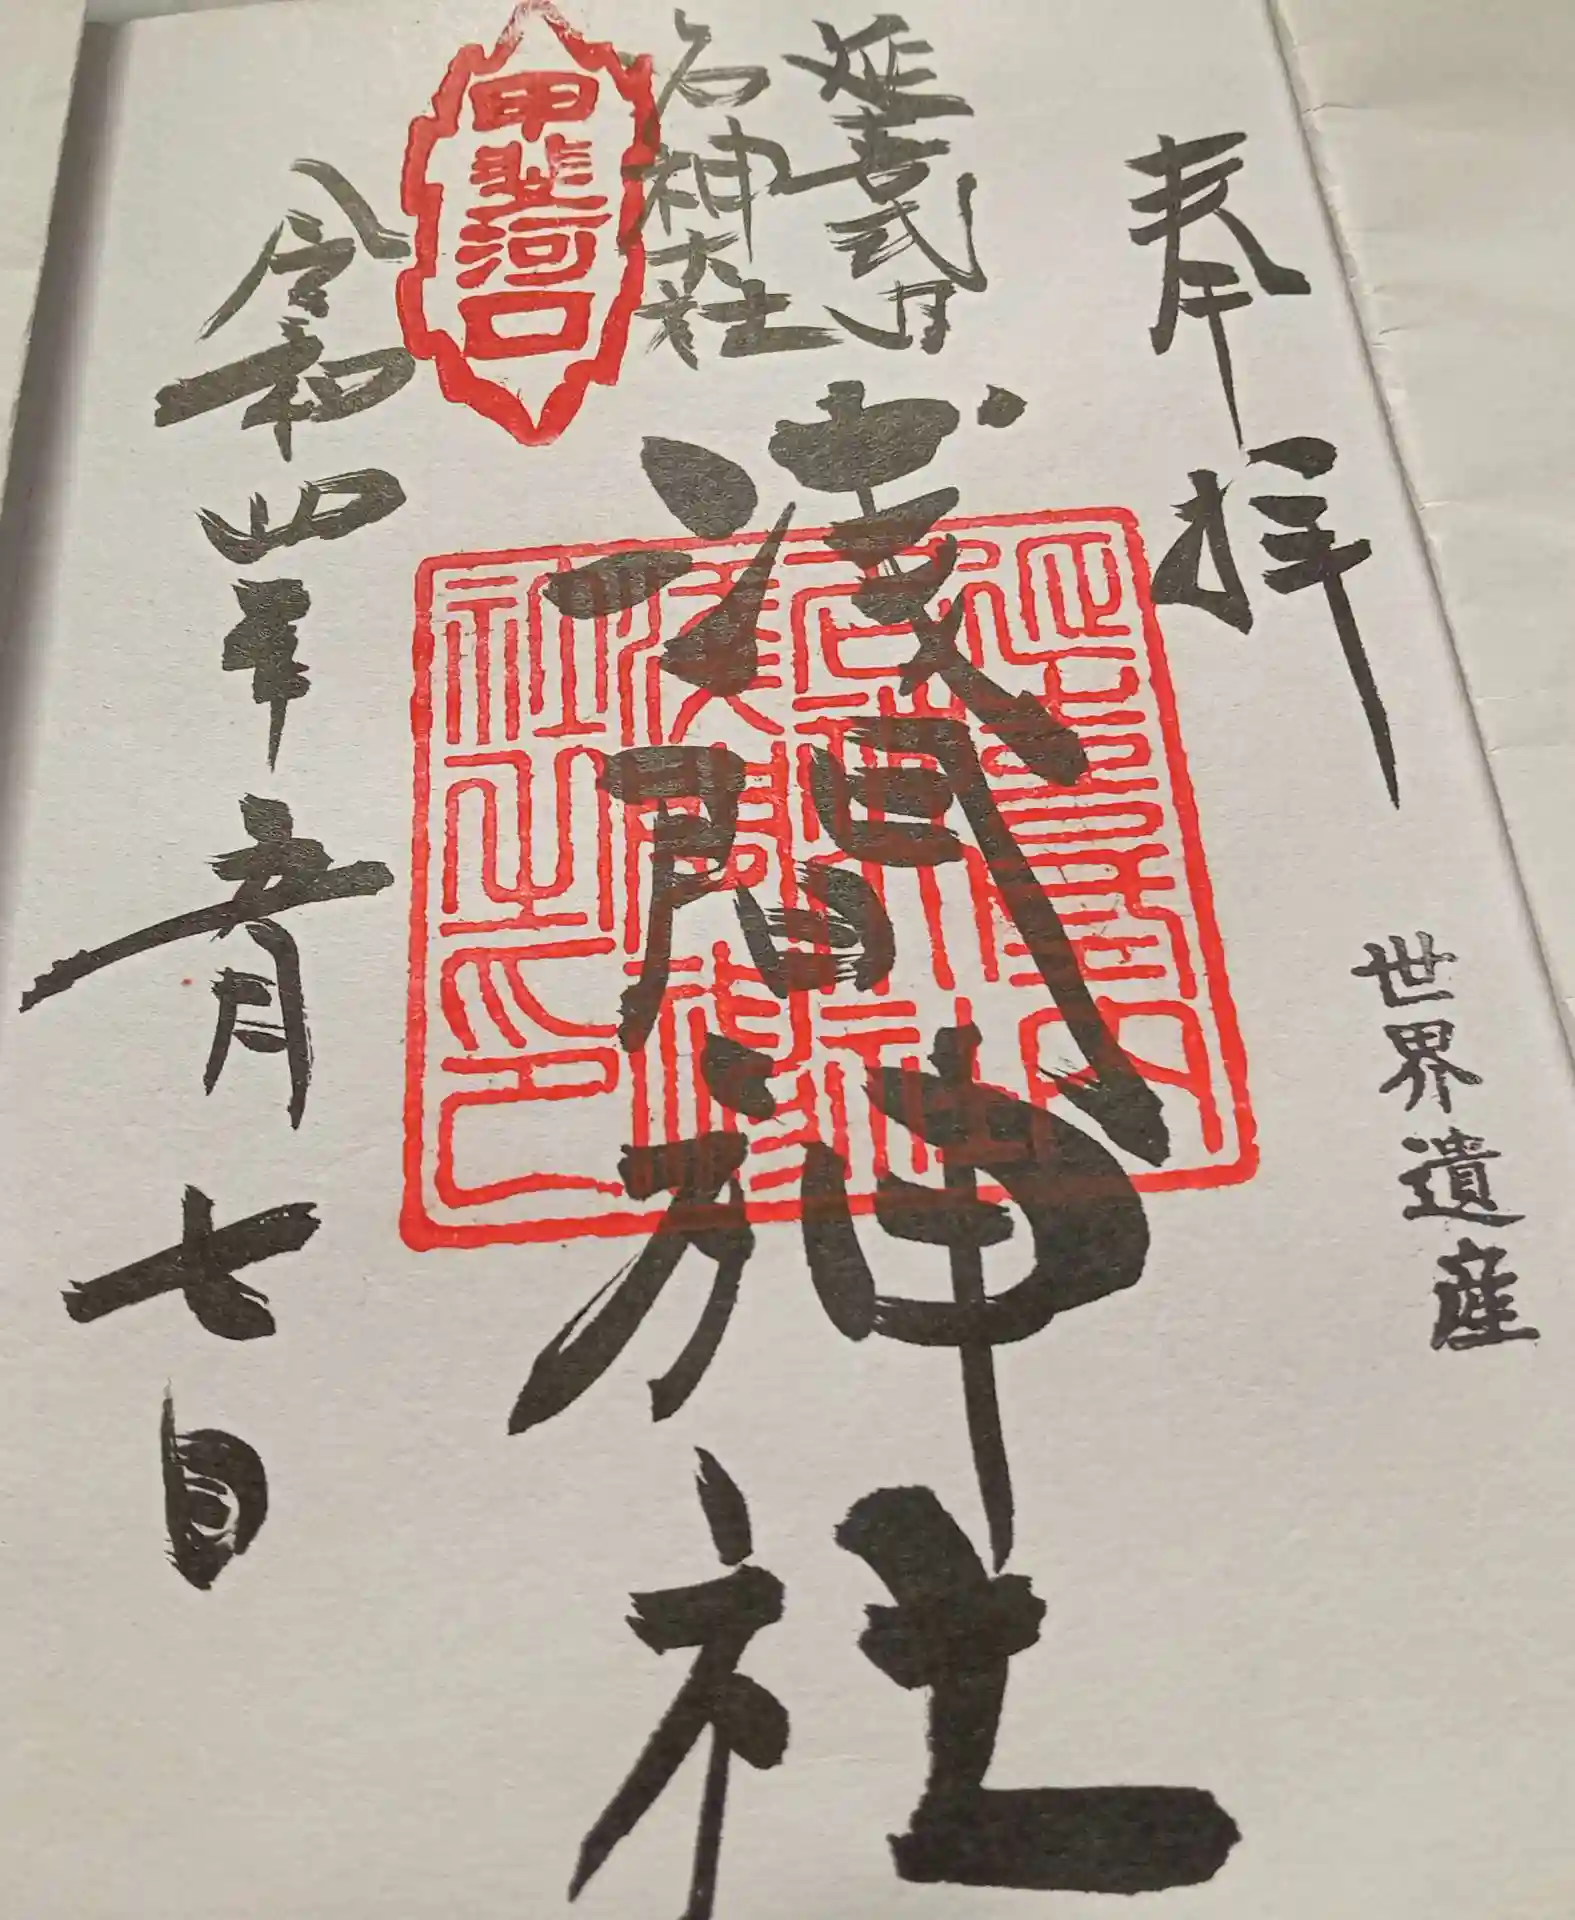 奉拝
世界遺産
延喜式内
名神大社
淺間神社
甲斐河口
令和四年五月七日